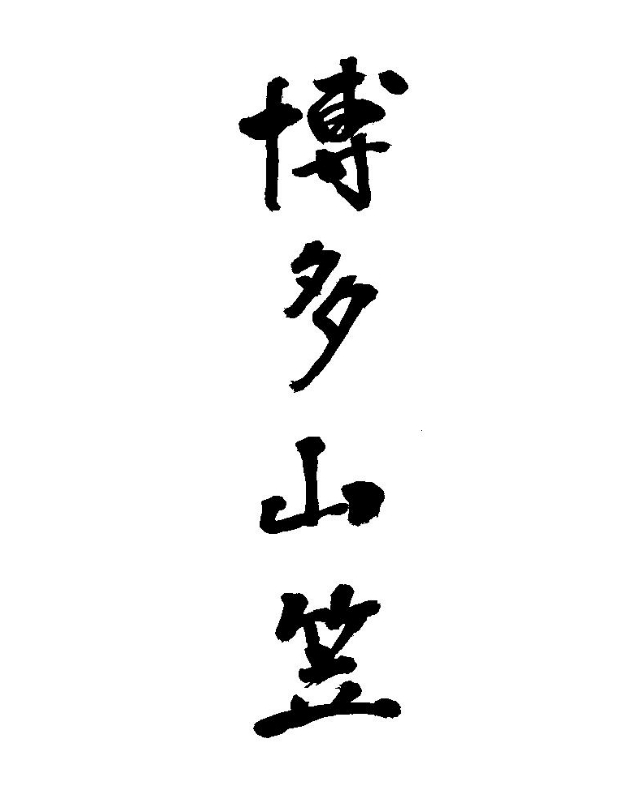 博多山笠